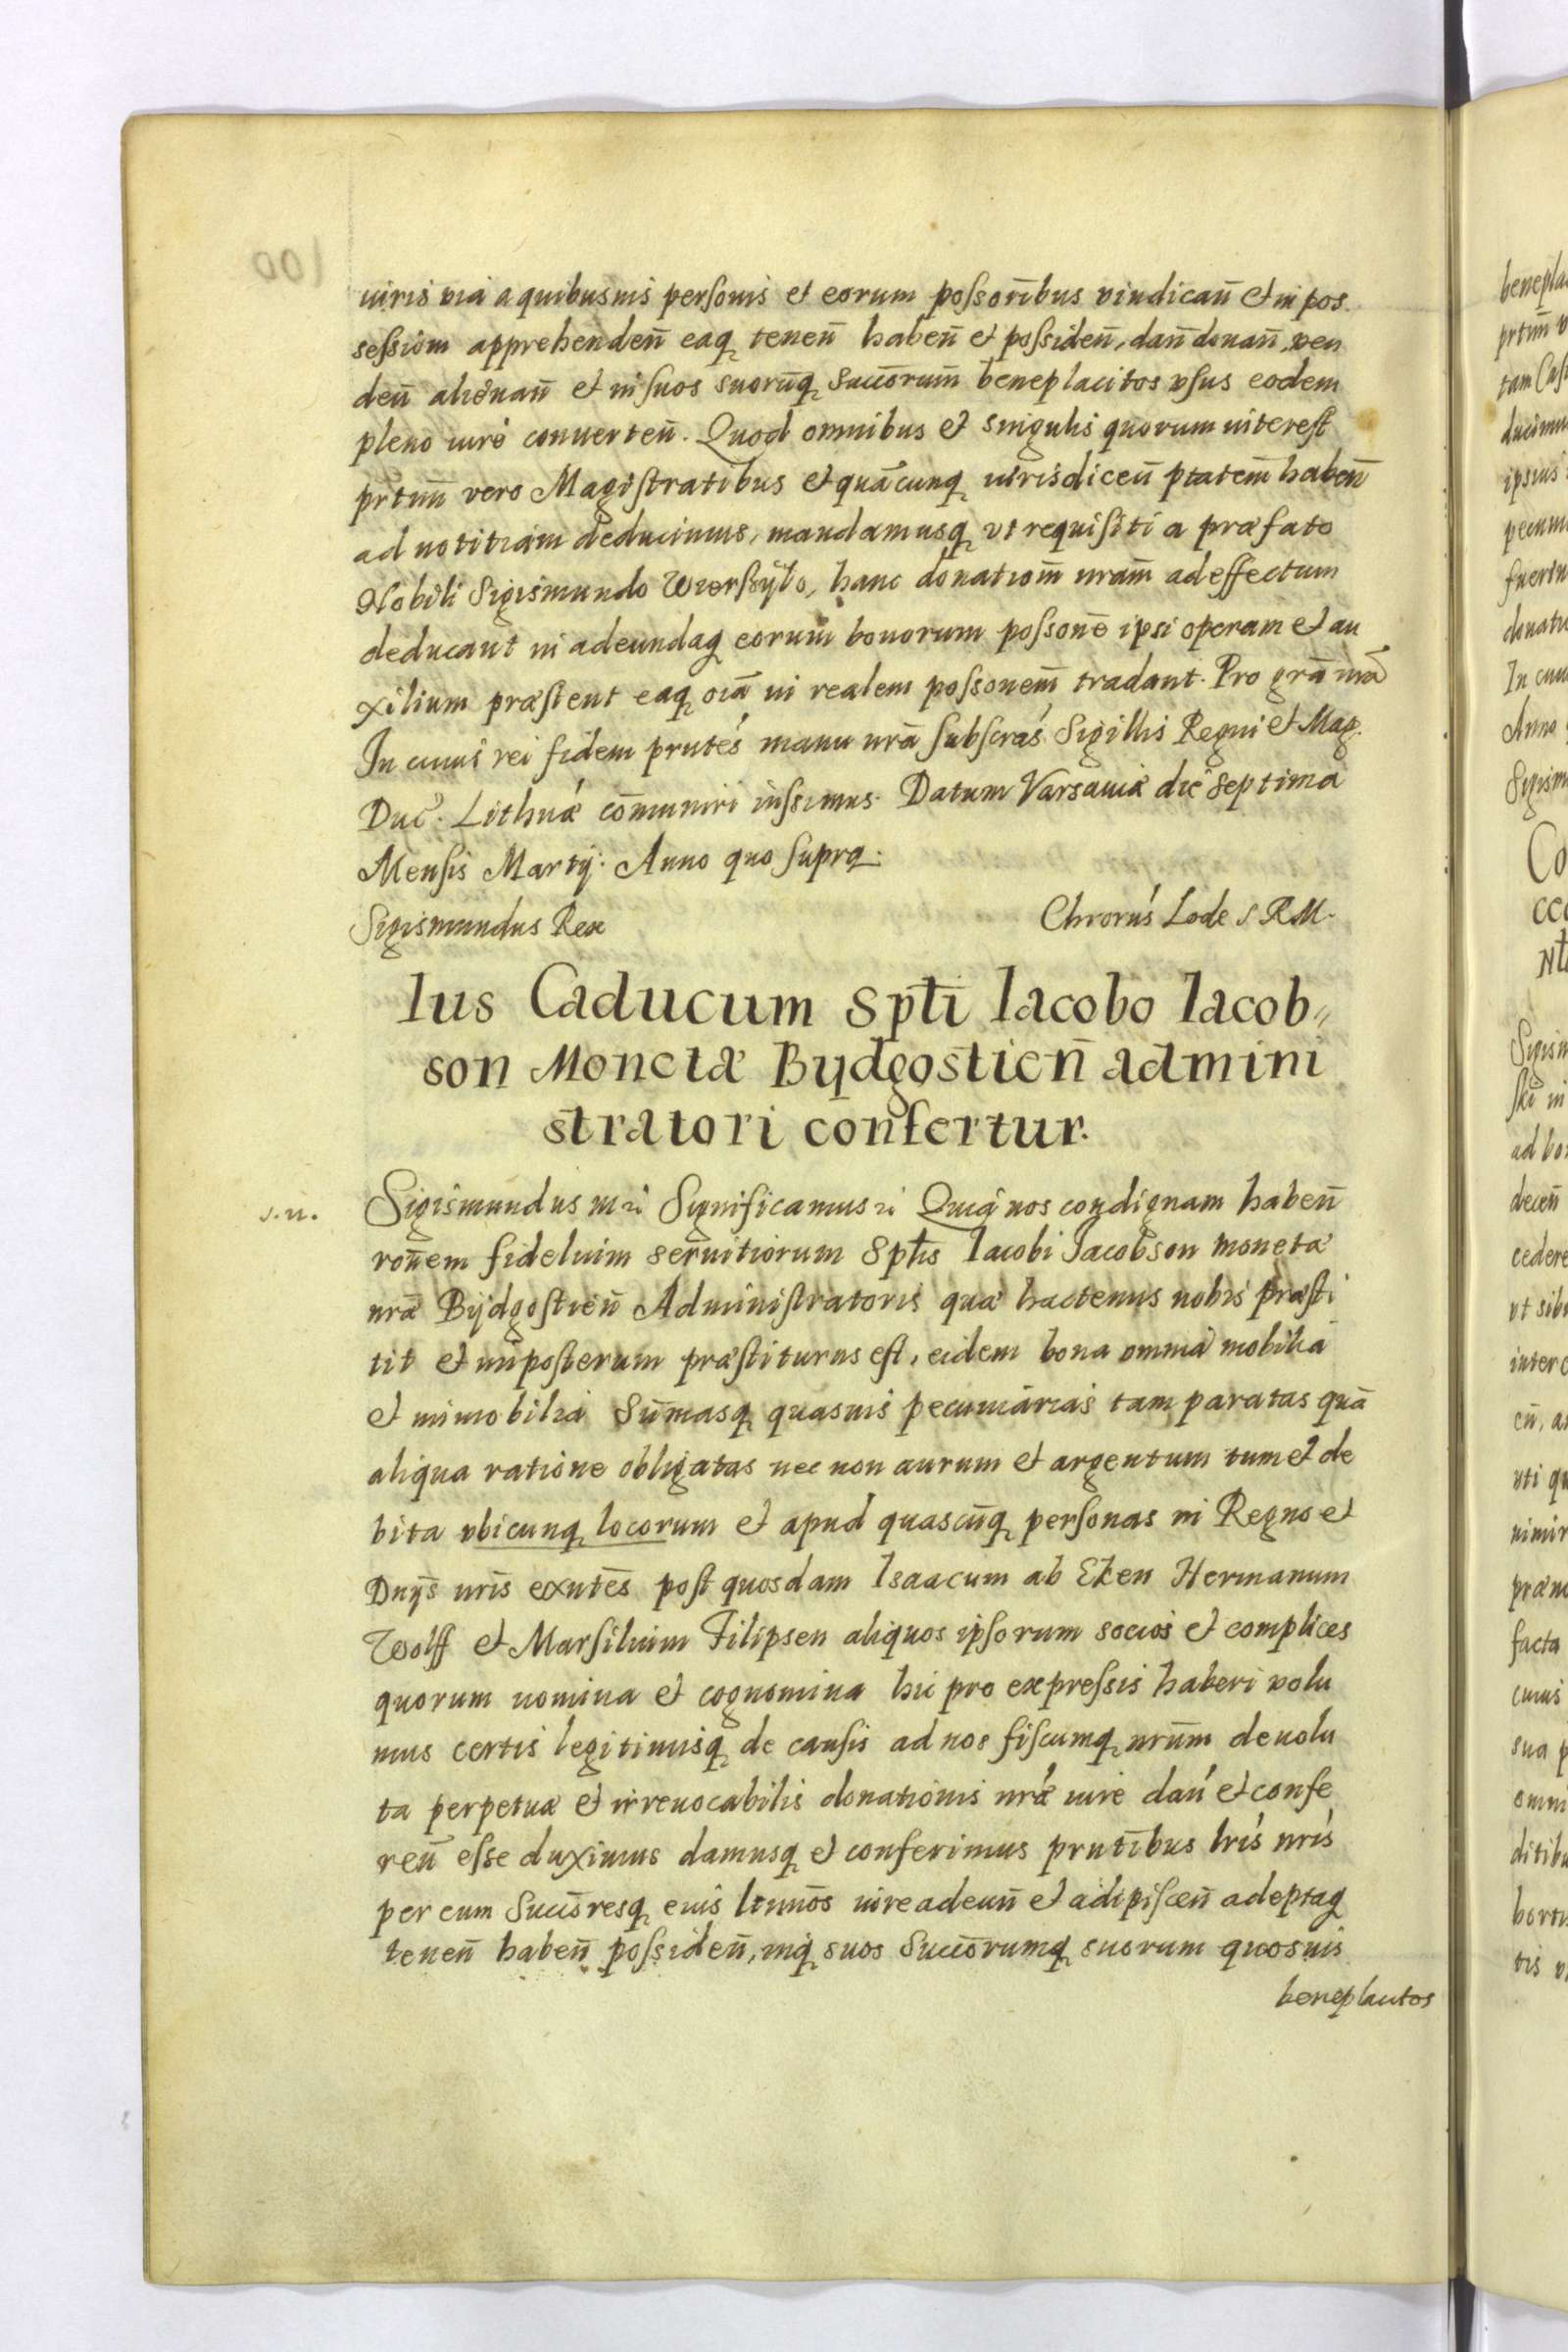 iuris via a quibusuis personis et eorum possoribus vindicañ et in pos
sessiom apprehendeñ eaq teneñ habeñ et possideñ, dañ donañ, ven
deñ alienañ et in suos suorūq succorum beneplacitos vsus eodem
pleno iure conuerteñ. Quod omnibus et singulis quorum interest
prtim vero Magistratibus et quācunq iurisdiceñ ptatem habeñ
ad notitiam deducimus, mandamusq vt requisiti a præfato
Nobili Sigismundo Wierszyło, hanc donatiom nram ad effectum
deducant in adeundaq eorum bonorum possone ipsi operam et au
xilium præstent eaq oia in realem possonem tradant. Pro grā nrā
In cuius rei fidem prntes manu nrā subscras Sigillis Regni et Mag.
Duc. Lithuæ cōmuniri iussimus. Datum Varsauiæ die septima
Mensis Martij. Anno quo supra.
Sigismundus Rex
Chrorus Lode S R M.
Ius Caducum Spti Iacobo Iacob„
son Monetæ Bydgostieñ admini
stratori confertur.
s.n.
Sigismundus m ri Significamus ri Quia nos condignam habeñ
ronem fidelium seruitiorum Sptis Iacobi Jacobson monetæ
nræ Bydgostieñ Administratoris quæ hactenus nobis præsti
tit et inposterum præstiturus est, eidem bona omnia mobilia
et immobilia Sūmasq quasuis pecuniarias tam paratas quā
aliqua ratione obligatas nec non aurum et argentum tum et de
bita vbicunq locorum et apud quascūq personas in Regno et
Dnys nris exntes post quosdam Isaacum ab Eken Hermanum
Wolff et Marsilium Filipsen aliquos ipsorum socios et complices
quorum nomina et cognomina hic pro expressis haberi volu
mus certis legitimisq de causis ad nos fiscumq nrum deuolu
ta perpetuæ et irreuocabilis donationis nræ iure dañ et confe
reñ esse duximus damusq et conferimus prntibus lris nris
per eum Succoresq eius ltimos iure adeuñ et adipisceñ adeptaq
teneñ habeñ possideñ, inq suos Succorumq suorum quosuis
beneplacitos